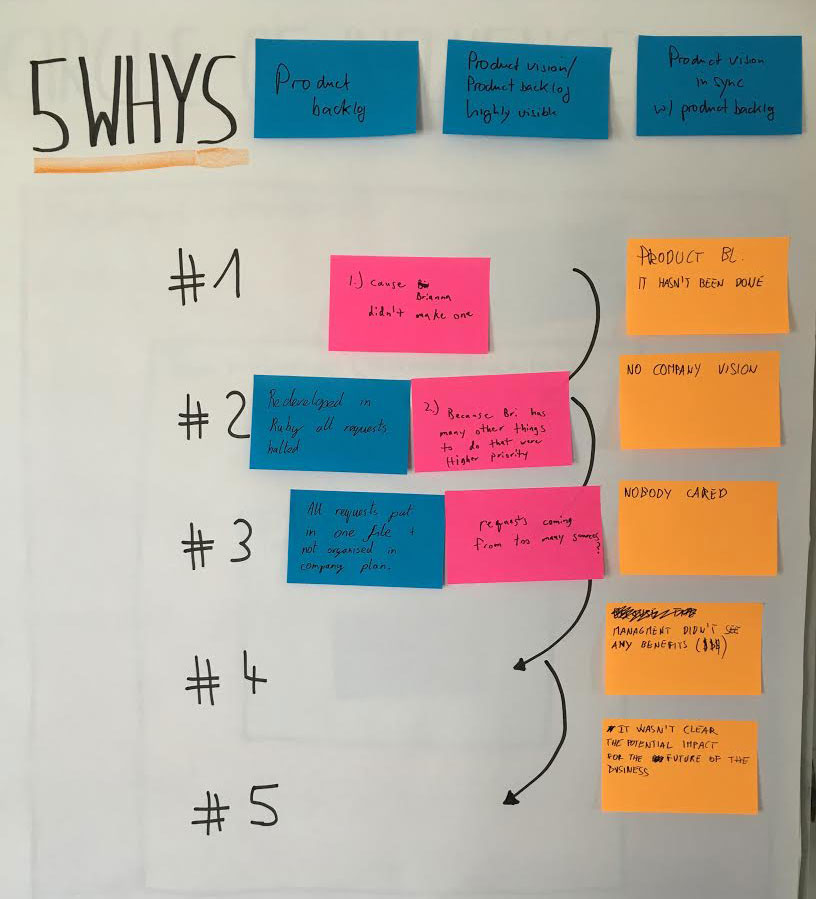 5 WHYS
Product
backlog
Product vision/
Product backlog
highly visible
Product vision
in sync
w/ product backlog
#1
1.) cause
Brianna
didn't make one
PRODUCT BL.
IT HASN'T BEEN DONE
#2
Redeveloped in
Ruby all requests
halted
2.) Because Bri has
many other things
to do that were
Higher priority
NO COMPANY VISION
#3
All requests put
in one file +
not organised in
company plan.
requests coming
from too many sources
?
NOBODY CARED
#4
MANAGMENT DIDN'T SEE
ANY BENEFITS ($$$)
#5
IT WASN'T CLEAR
THE POTENTIAL IMPACT
FOR THE FUTURE OF THE
BUSINESS